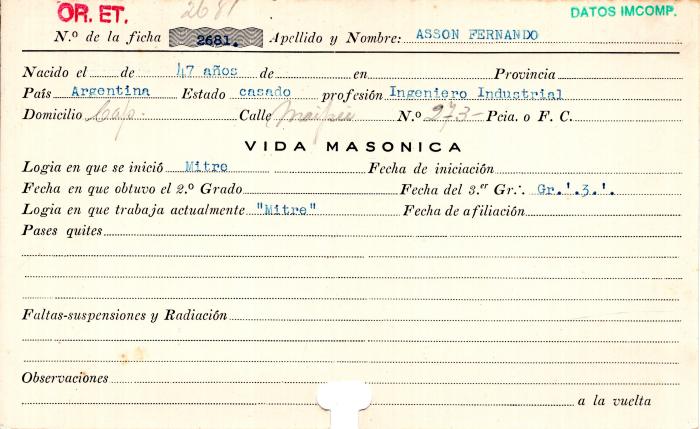 OR. ET. 2681 DATOS IMCOMP.
N.º de la ficha 2681. Apellido y Nombre: ASSON FERNANDO
Nacido el de 47 años de en Provincia
País Argentina Estado casado profesión Ingeniero Industrial
Domicilio Cap. Calle Maipu N.º 273- Pcia. o F. C.
VIDA MASONICA
Logia en que se inició Mitre Fecha de iniciación
Fecha en que obtuvo el 2.º Grado Fecha del 3.er Gr∴ Gr.'.3.'.
Logia en que trabaja actualmente "Mitre" Fecha de afiliación
Pases quites
Faltas-suspensiones y Radiación
Observaciones
a la vuelta